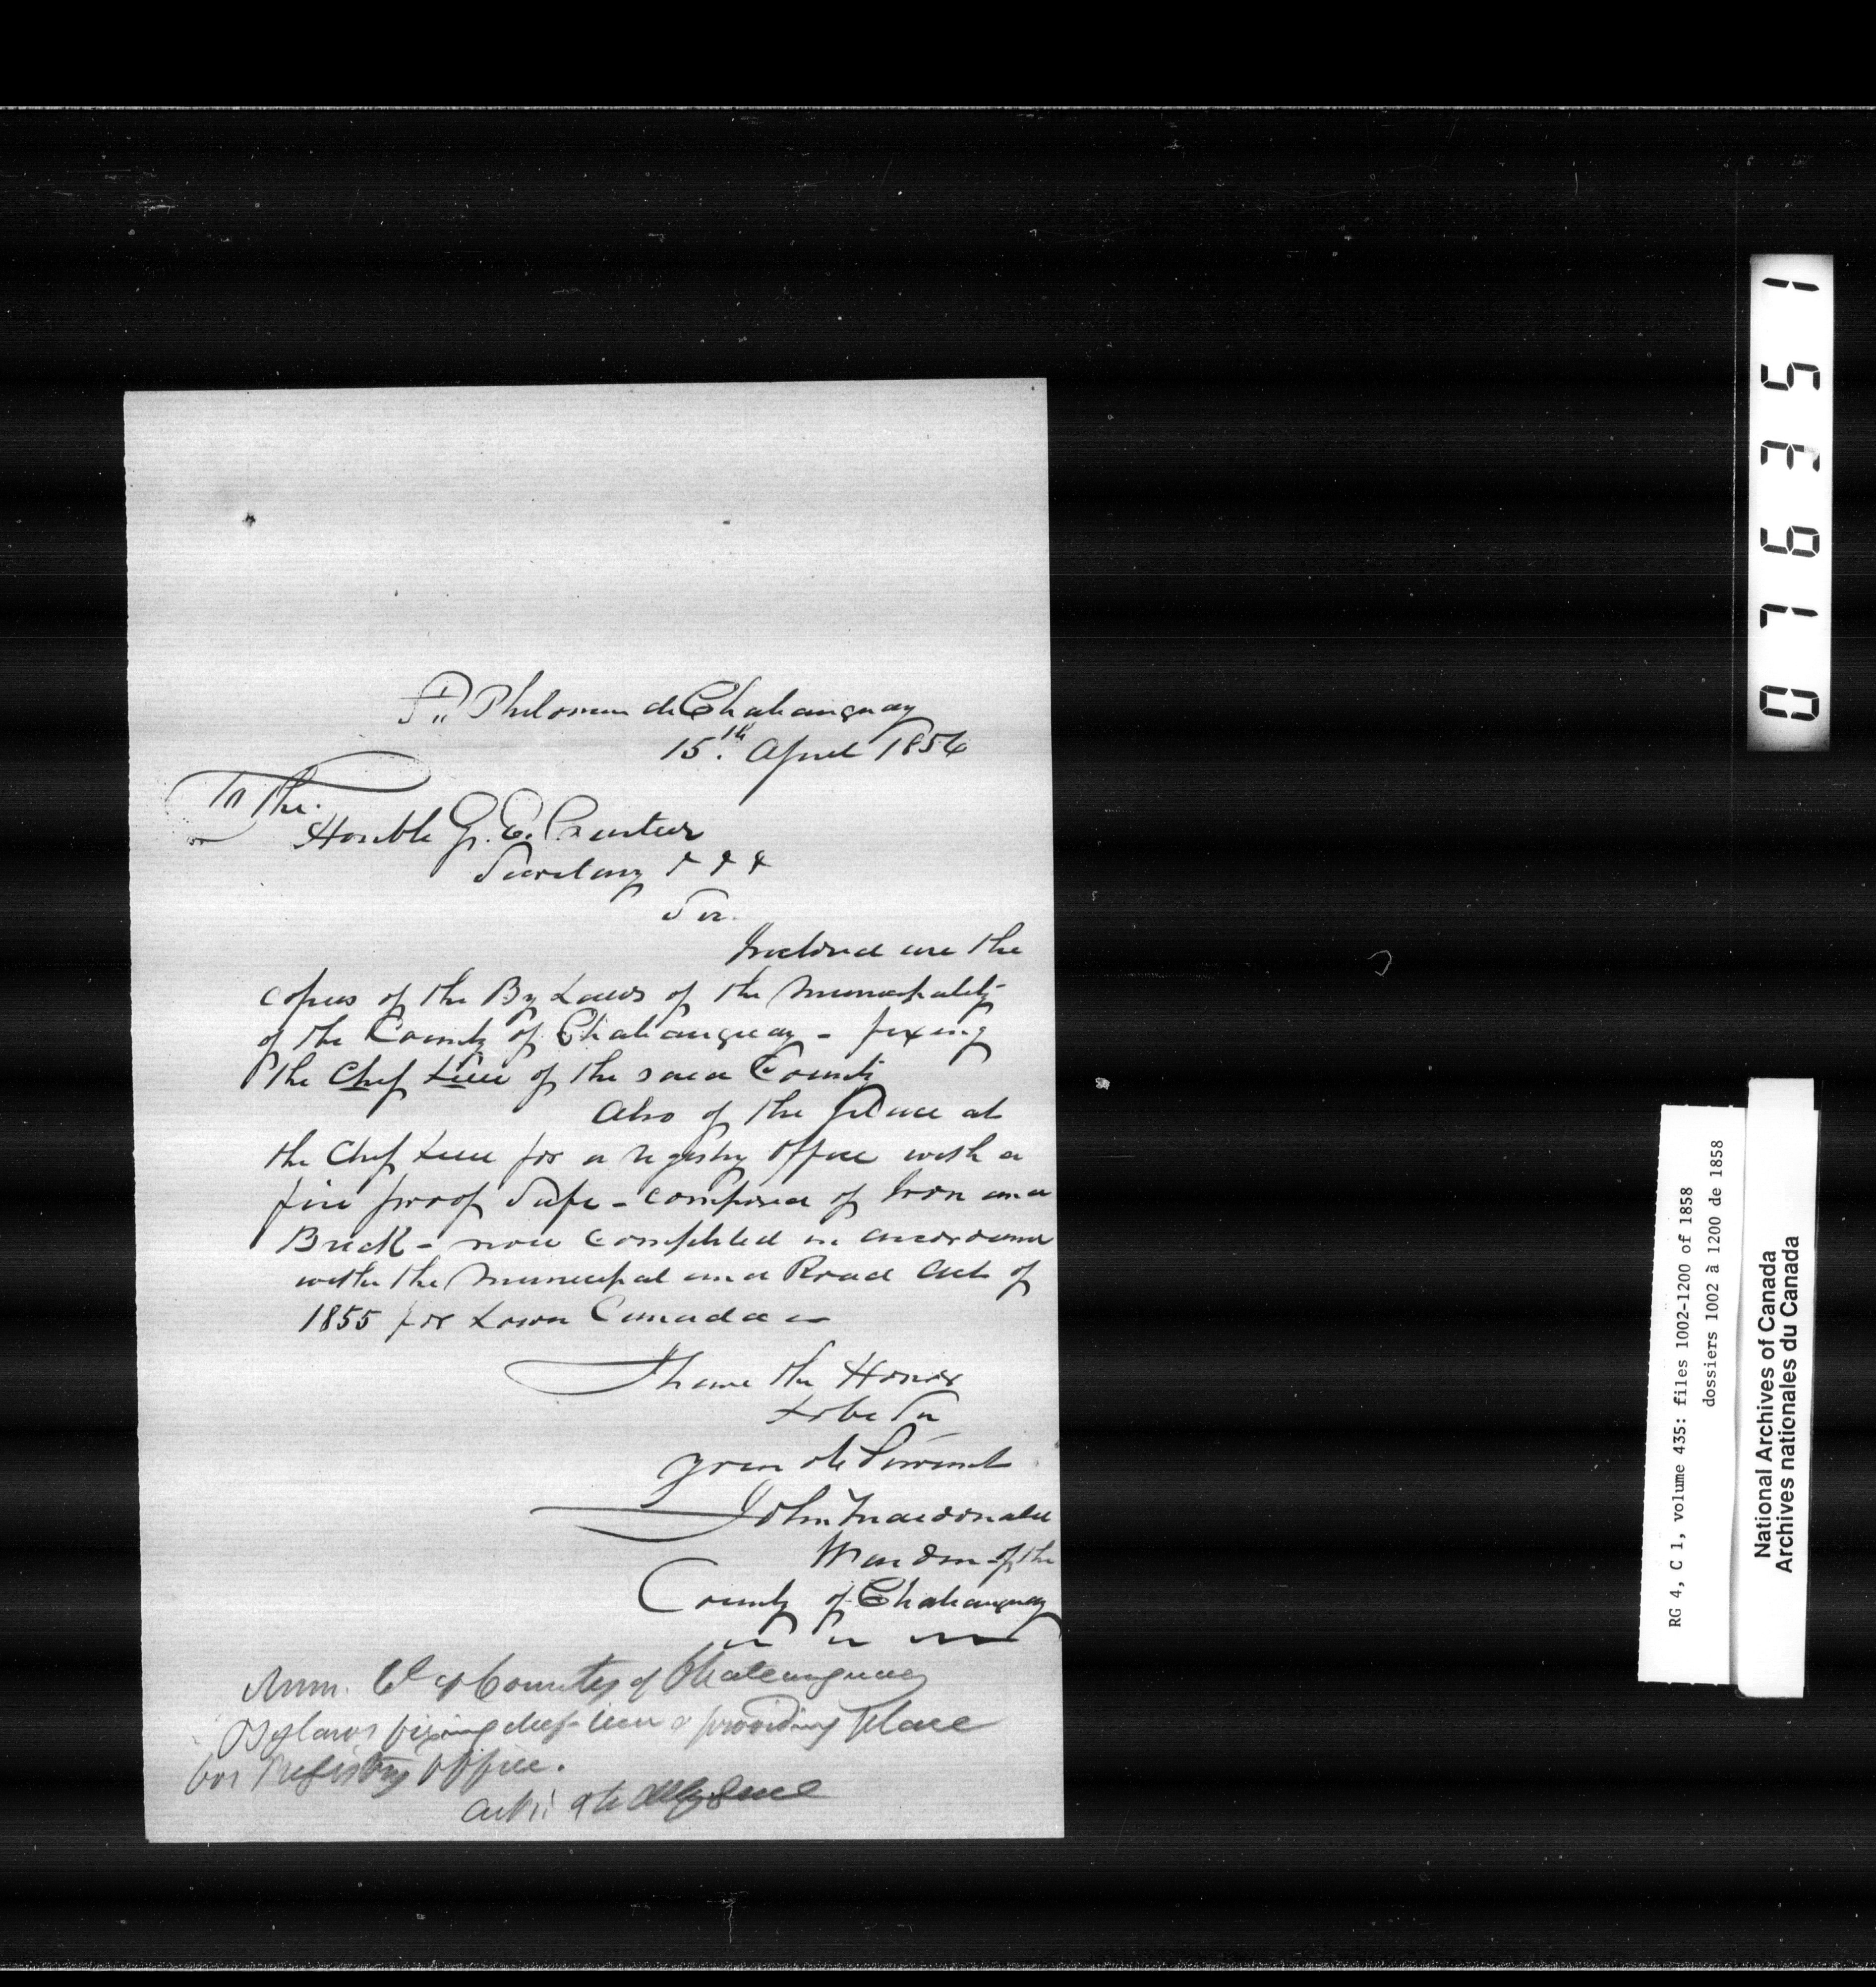 St. Philomen de Chateauguay
15th. April 1856
To The
Honble G. E. Cartier
Secretary & & &
Sir.
Inclosed are the
copies of the By Laws of the Municipality
of the County of Chateauguay - fixing
the Chef Lieu of the said County
Also of the place at
the Chef Lieu for a registry office with a
fire proof Safe - composed of Iron and
Brick - now completed in accordance
with the Municipal and Road Act of
1855 for Lower Canada
I have the Honor
to be Sir
your ob Servant
John Macdonald
Warden of the
County of Chateauguay
Mun. Cl of County of Chateauguay
Bylaws fixing chef-lieu & providing place
for Registry Office.
076351
RG 4, C 1, volume 435: files 1002-1200 of 1858
dossiers 1002 à 1200 de 1858
National Archives of Canada
Archives nationales du Canada